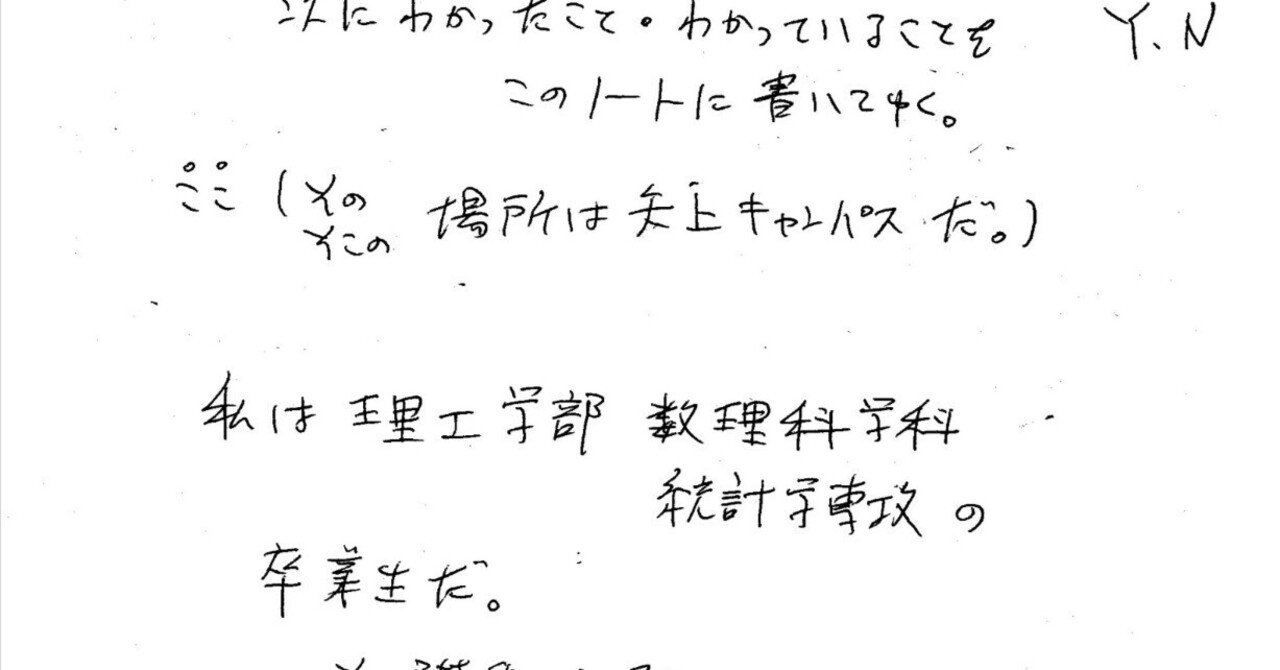 次にわかったこと。わかっていることを Y.N
このノートに書いてゆく。
ここ (その 場所は矢上キャンパスだ。)
そこの
私は理工学部 数理科学科
統計学専攻の
卒業生だ。